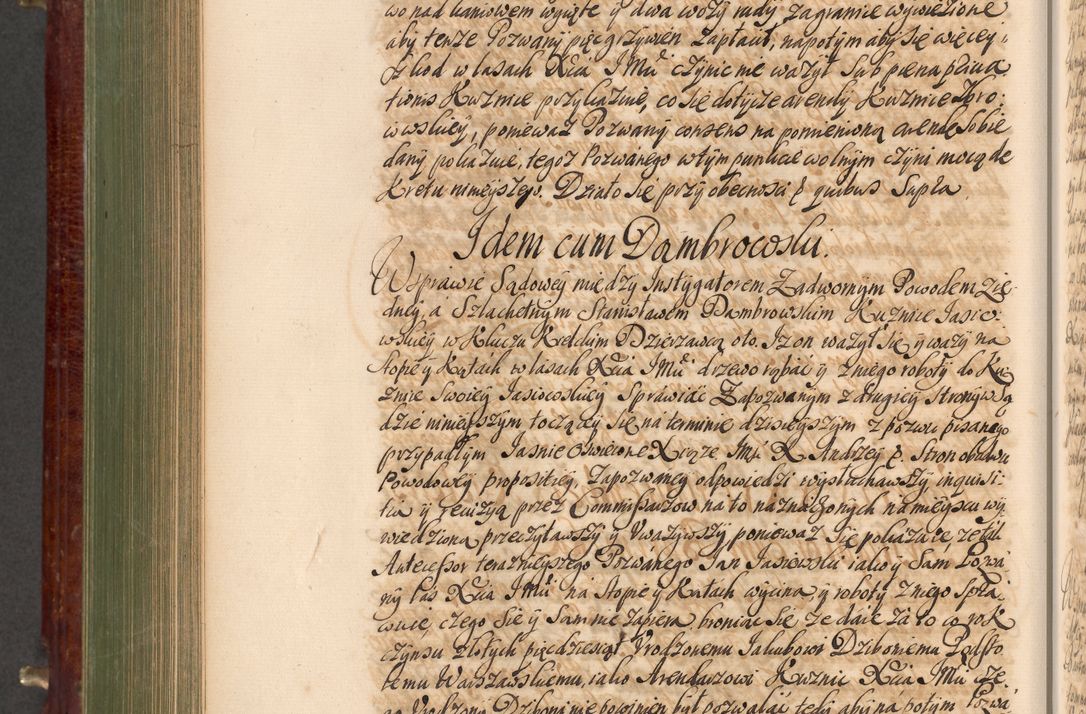 wo nad kaniowem wycięte y dwa wozy rudy zagranicę wywiezione
aby tenże Pozwany pięc grzywien zapłacił, napotym aby się więcey
szkod w lasach Xcia JMci czynic nie ważył sub pœna priua
tionis Kuznice przykazuie, co się dotycze arendy Kuznice Zbro:
wskiey, ponieważ Pozwany consens na pomienioną arendę Sobie
dany pokazuie, tegoż Pozwanego w tym punkcie wolnym czyni mocą de
kretu ninieyszego. Działo się przy obecnosci p quibus Supra
Idem cum Dambrowski.
W Sprawie Sądowey między Instygatorem Zadwornym Powodem zie
dney, a Szlachetnym Stanisławem Dambrowskim Kuznice Jasio
wskiey w Kluczu Kieleckim Dzierzawcą oto. Iz on ważył się y waży na
stopie y Kątach w lasach Xcia JMci drzewo rąbać y z niego roboty do Ku
znie Swoiey Jasiowskiey Sprawiać Zapozwanym z drugiey Strony w Są
dzie ninieyszym toczącey się na terminie dzisieyszym z pozwu pisanego
przypadłym Jasnie Oswiecone Xiąże JMć X Andrzey p. Stron obudwu
Powodowey propositiey, Zapozwaney odpowiedzi wysłuchawszy inquisi:
tia y rewizyą przez Commissarzow na to naznaczonych na mieyscu wy
wiedzioną przeczytawszy y Uważywszy ponieważ się pokazuie, ze tak
Antecessor teraznieyszego Pozwanego Jan Jasiewski iako y Sam Pozwa
ny las Xcia JMci na stopie y Kątach wycina, y roboty z niego Spra
wuie, czego się y Sam nie zapiera broniac się ze daie za to co rok
czynszu złotych pięcdziesiąt Urodzonemu Jakubowi Dziboniemu Podsto
lemu Warszawskiemu, iako Arendarzowi Kuznic Xcia JMci cze
go Urodzony Diboni nie powinien był pozwalać tedy aby na potym Pozwa